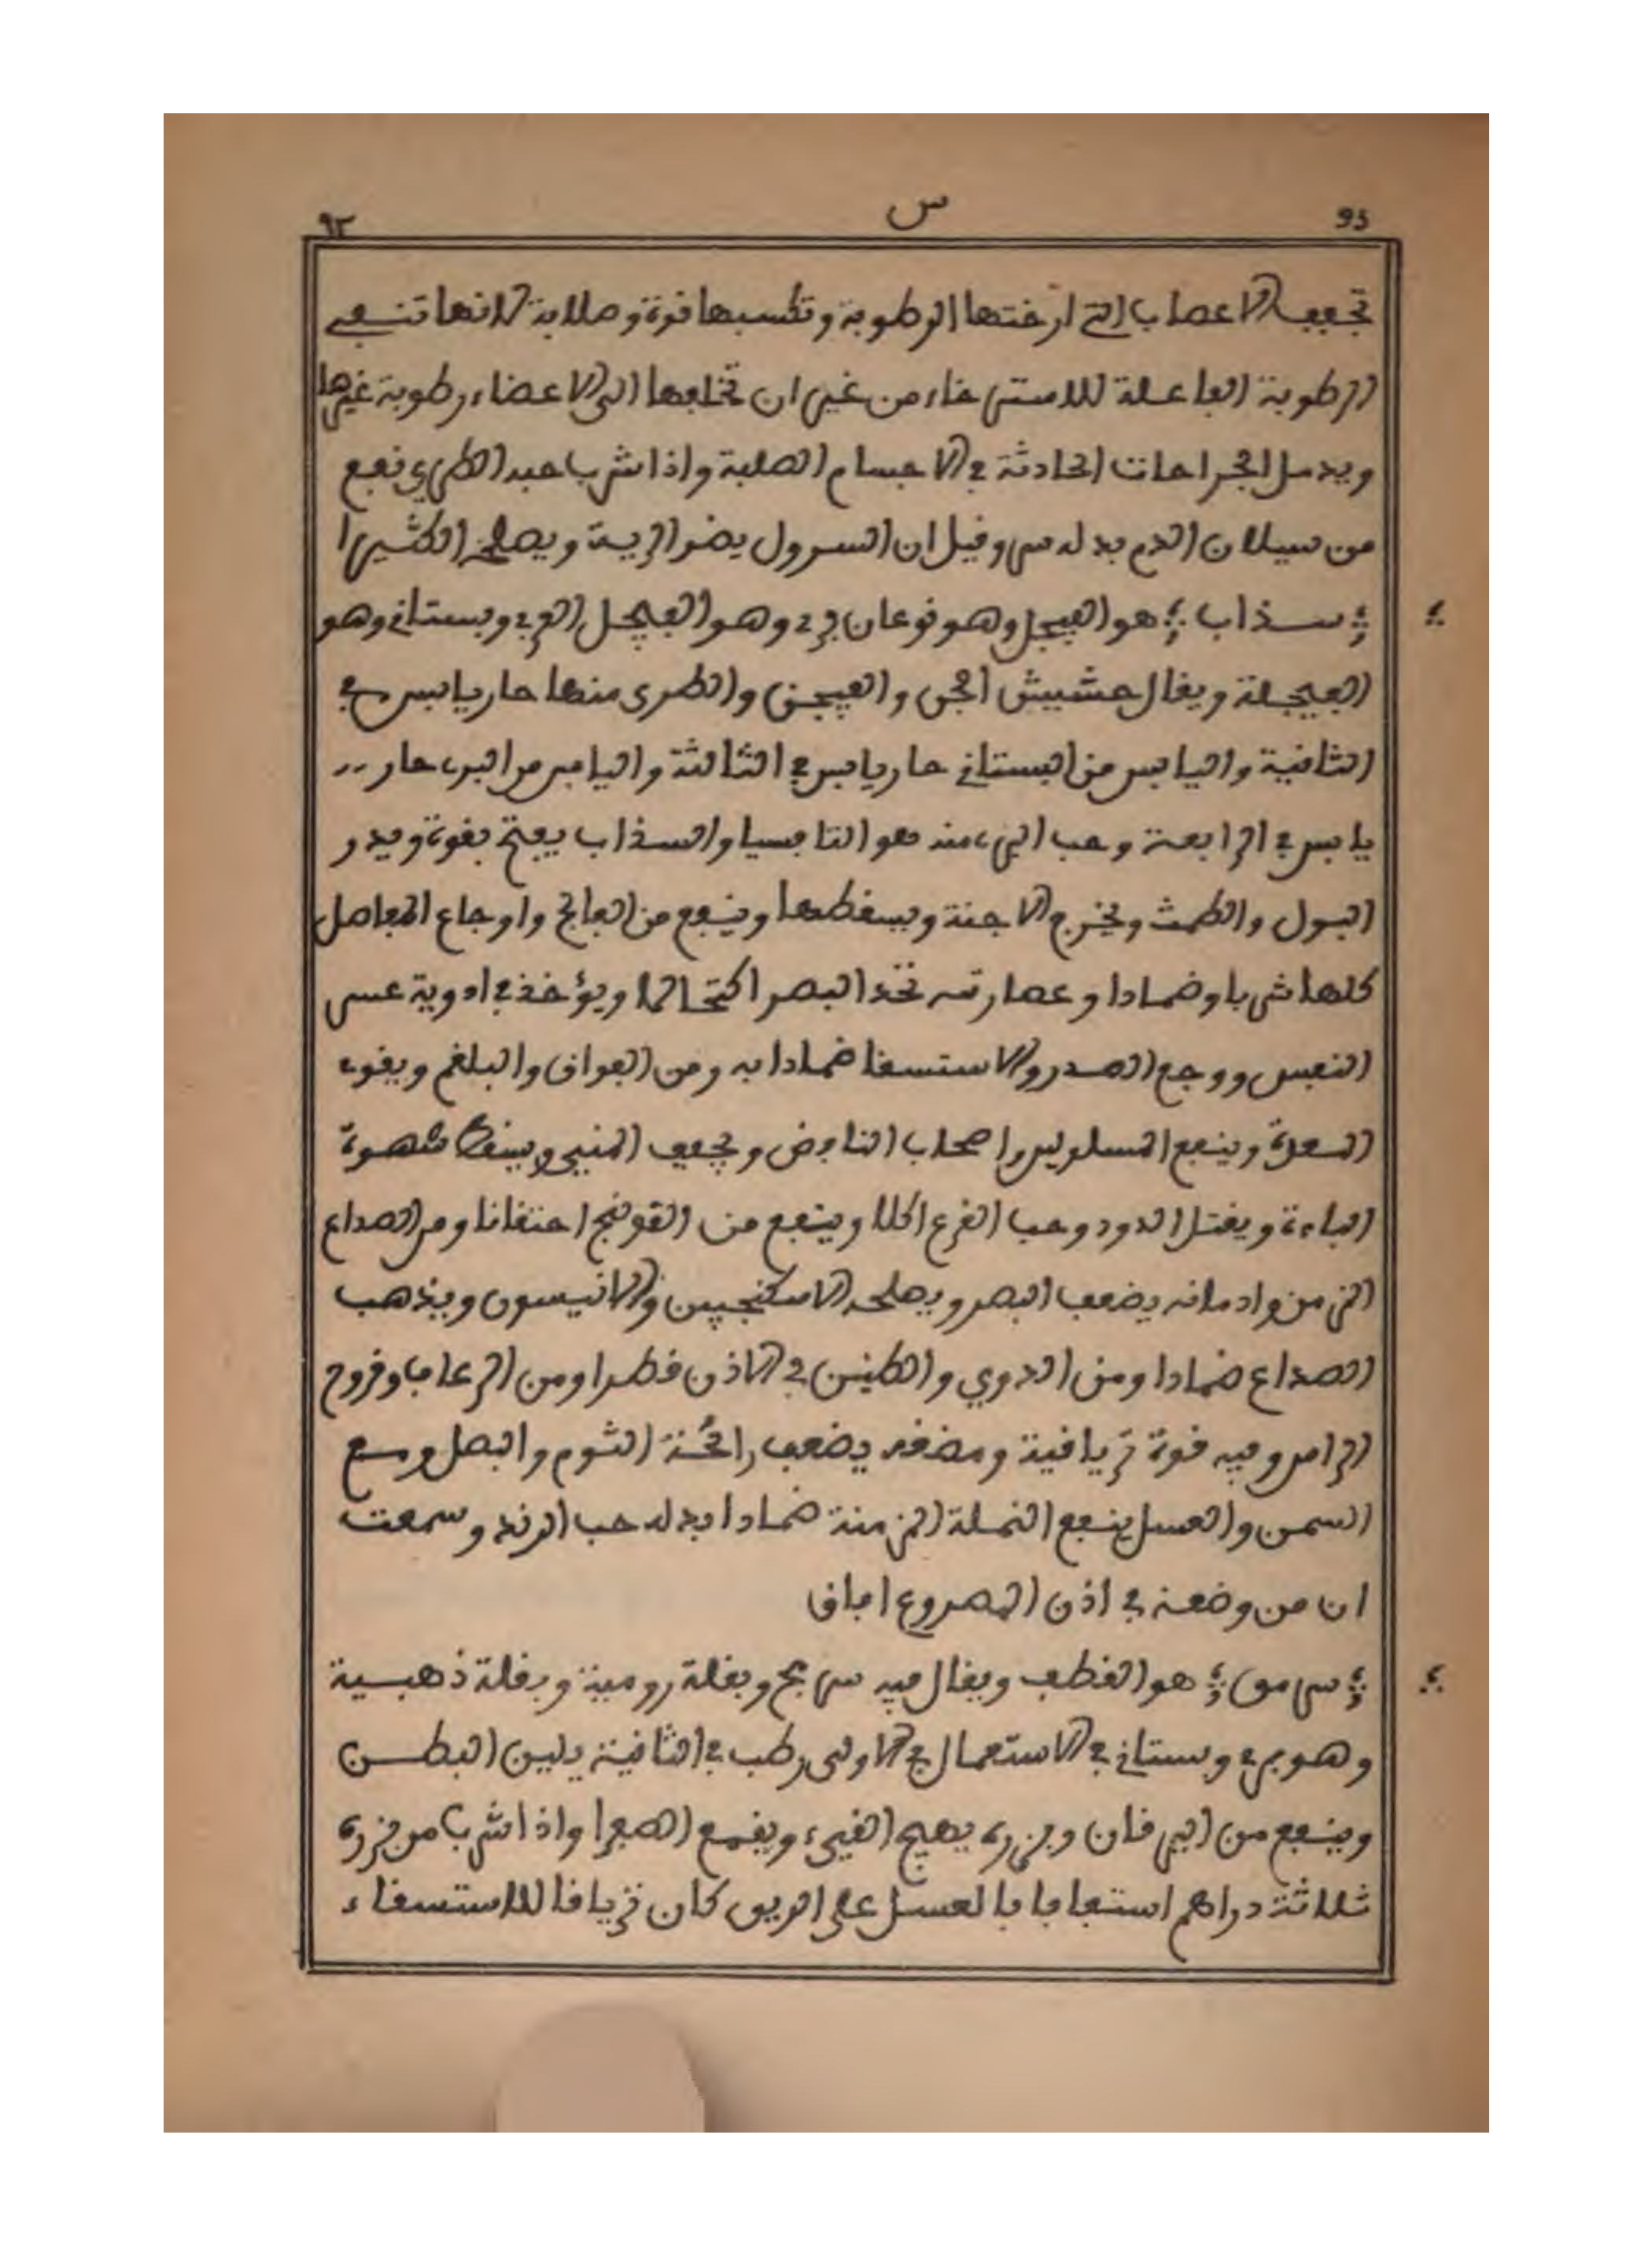 ٩٣ س 93
تجفف الاعصاب التي ارختها الرطوبة وتكسبها قوة وصلابة لانها تنفي
الرطوبة الفاعلة للاسترخاء من غير ان تخلفها الى الاعضاء رطوبة غيرها
ويدمل الجراحات الحادثة في الاجسام الصلبة واذا شرب حبه الطري نفع
من سيلان الدم بدله سر وقيل ان السرول يضر الرية ويصلحه الكثيرا
سذاب هو الفيجل وهو نوعان بري وهو الفيجل البري وبستاني وهو
الفيجلة ويقال حشيش الجن والفيجن والطرى منها حار يابس في
الثانية واليابس من البستاني حار يابس في الثالثة واليابس من البرى حار
يابس في الرابعة وحب البرى منه هو التافسيا والسذاب يفتح بقوة ويدر
البول والطمث ويخرج الاجنة ويسقطها وينفع من الفالج واوجاع المفاصل
كلها شربا وضمادا وعصارته تحد البصر اكتحالا ويؤخذ في ادوية عسر
النفس ووجع الصدر والاستسقا ضمادا به ومن الفواق والبلغم ويقوى
المعدة وينفع المسلولين واصحاب النافض ويجفف المني ويسقط شهوة
الباءة ويقتل الدود وحب القرع اكلا وينفع من القولنج احتقانا ومن الصداع
المزمن وادمانه يضعف البصر ويصلحه الاسكنجبين والانيسون ويذهب
الصداع ضمادا ومن الدوي والطنين في الاذن قطرا ومن الرعاف وقروح
الراس وفيه قوة ترياقية ومضغه يضعف رائحة الثوم والبصل ومع
السمن والعسل ينفع النملة المزمنة ضمادا بدله حب الرند وسمعت
ان من وضعه في اذن المصروع افاق
سرمق هو القطف ويقال فيه سرمج وبقلة رومية وبقلة ذهبية
وهو بري وبستاني في الاستعمال في الاولى رطب في الثانية يلين البطن
وينفع من اليرقان وبزره يهيج القيء ويقمع الصفرا واذا شرب من بزره
ثلاثة دراهم استفافا بالعسل على الريق كان ترياقا للاستسقاء